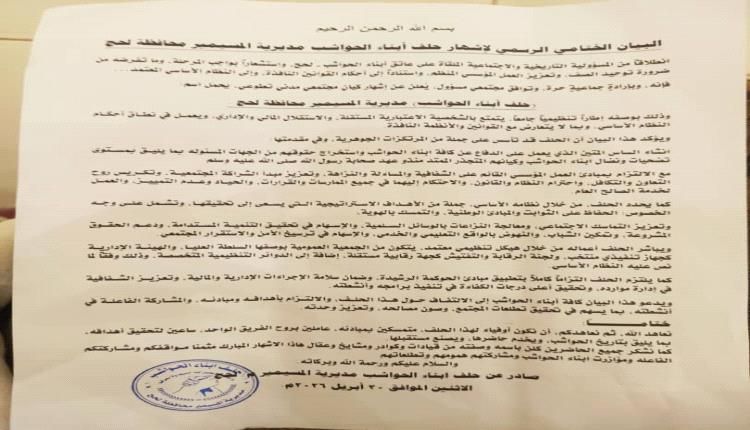 بسم الله الرحمن الرحيم
البيان الختامي الرسمي لإشهار حلف أبناء الحواشب مديرية المسيمير محافظة لحج
انطلاقاً من المسؤولية التاريخية والاجتماعية الملقاة على عاتق أبناء الحواشب ـ لحج، واستشعاراً بواجب المرحلة، وما تفرضه من
ضرورة توحيد الصف، وتعزيز العمل المؤسسي المنظم، واستناداً إلى أحكام القوانين النافذة، وإلى النظام الأساسي المعتمد...
فإنه، وبإرادةٍ جماعيةٍ حرة، وتوافقٍ مجتمعي مسؤول، يُعلن عن إشهار كيان مجتمعي مدني تطوعي، يحمل اسم:
(حلف أبناء الحواشب) مديرية المسيمير محافظة لحج
وذلك بوصفه إطاراً تنظيمياً جامعاً، يتمتع بالشخصية الاعتبارية المستقلة، والاستقلال المالي والإداري، ويعمل في نطاق أحكام
النظام الأساسي، وبما لا يتعارض مع القوانين والأنظمة النافذة
ويؤكد هذا البيان أن الحلف قد تأسس على جملة من المرتكزات الجوهرية، وفي مقدمتها:
انشاء الساس المتين الذي يعمل على الدفاع عن كافة ابناء الحواشب واستخراج حقوقهم من الجهات المسئوله بما يليق بمستوى
تضحيات ونضال ابناء الحواشب وكيانهم المتجذر الممتد منذو عهد صحابة رسول الله صلى الله عليه وسلم
مع الالتزام بمبادئ العمل المؤسسي القائم على الشفافية والمساءلة والنزاهة، وتعزيز مبدأ الشراكة المجتمعية، وتكريس روح
التعاون والتكافل، واحترام النظام والقانون، والاحتكام إليهما في جميع الممارسات والقرارات، والحياد وعدم التمييز، والعمل
لخدمة الصالح العام
كما يحدد الحلف، من خلال نظامه الأساسي، جملة من الأهداف الاستراتيجية التي يسعى إلى تحقيقها، وتشمل على وجه
الخصوص: الحفاظ على الثوابت والمبادئ الوطنية، والتمسك بالهوية،
وتعزيز التماسك الاجتماعي، ومعالجة النزاعات بالوسائل السلمية، والإسهام في تحقيق التنمية المستدامة، ودعم الحقوق
المشروعة، وتمكين الشباب، والنهوض بالواقع التعليمي والخدمي، والإسهام في ترسيخ الأمن والاستقرار المجتمعي.
ويباشر الحلف أعماله من خلال هيكل تنظيمي معتمد، يتكون من الجمعية العمومية بوصفها السلطة العليا، والهيئة الإدارية
كجهاز تنفيذي منتخب، ولجنة الرقابة والتفتيش كجهة رقابية مستقلة، إضافة إلى الدوائر التنظيمية المتخصصة، وذلك وفقاً لما
نص عليه النظام الأساسي.
كما يلتزم الحلف التزاماً كاملاً بتطبيق مبادئ الحوكمة الرشيدة، وضمان سلامة الإجراءات الإدارية والمالية، وتعزيز الشفافية
في إدارة موارده، وتحقيق أعلى درجات الكفاءة في تنفيذ برامجه وأنشطته.
ويدعو هذا البيان كافة أبناء الحواشب إلى الالتفاف حول هذا الحلف، والالتزام بأهدافه ومبادئه، والمشاركة الفاعلة في
أنشطته، بما يسهم في تحقيق تطلعات المجتمع، وصون مصالحه، وتعزيز وحدته.
ختاماً:
نعاهد الله، ثم نعاهدكم، أن نكون أوفياء لهذا الحلف، متمسكين بمبادئه، عاملين بروح الفريق الواحد، ساعين لتحقيق أهدافه،
بما يليق بتاريخ الحواشب، ويخدم حاضرها، ويصنع مستقبلها.
كما نشكر جميع الحاضرين كلن باسمه وصفته من قيادات وكوادر ومشايخ وعقال هذا الاشهار المبارك مثمنا مواقفكم ومشاركتكم
الفاعله ومؤازرت ابناء الحواشب ومشاركتهم همومهم وتطلعاتهم
والسلام عليكم ورحمة الله وبركاته.
صادر عن حلف أبناء الحواشب مديرية المسيمير م لحج
الاثنين الموافق ٢٠ أبريل ٢٠٢٦م.
حلف أبناء الحواشب
مديرية المسيمير محافظة لحج